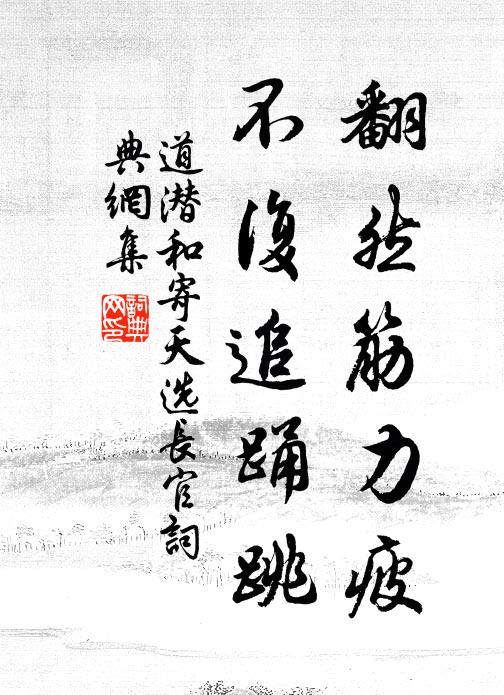 翻然筋力疲
不復追踊跳
道潜和寄天选長官詞
典網集
詞典网印